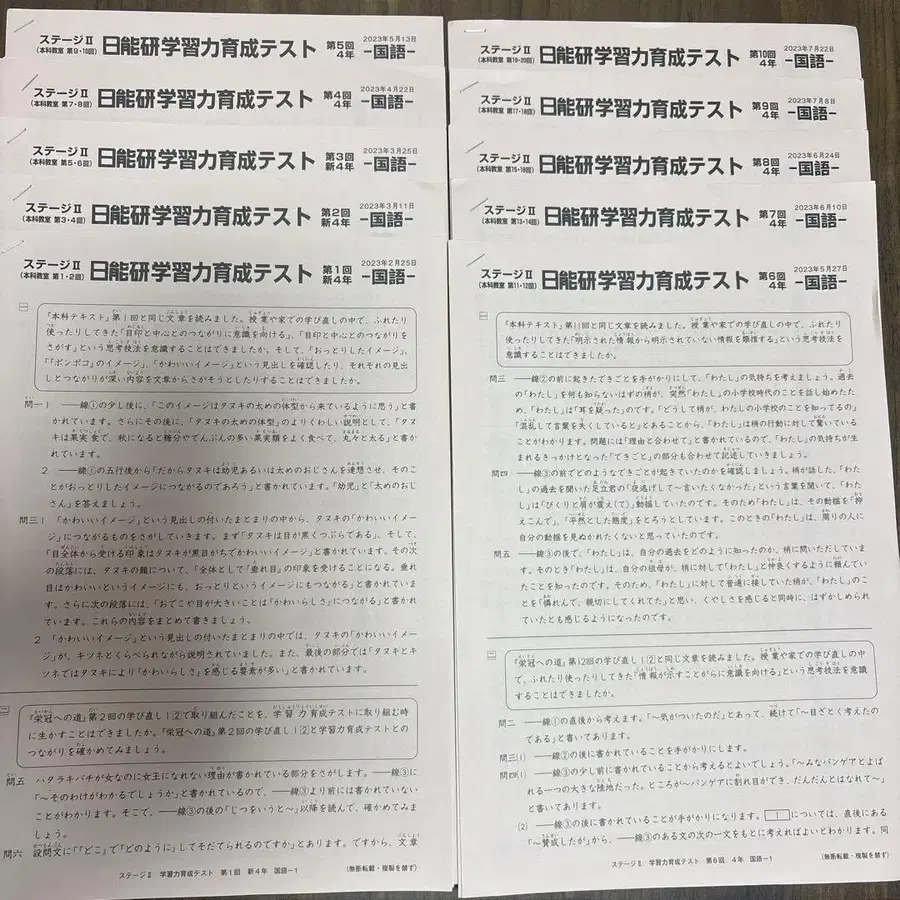 ステージⅡ
(本科教室 第9・10回)
日能研学習力育成テスト
第5回
4年
2023年5月13日
-国語-
ステージⅡ
(本科教室 第7・8回)
日能研学習力育成テスト
第4回
4年
2023年4月22日
-国語-
ステージⅡ
(本科教室 第5・6回)
日能研学習力育成テスト
第3回
新4年
2023年3月25日
-国語-
ステージⅡ
(本科教室 第3・4回)
日能研学習力育成テスト
第2回
新4年
2023年3月11日
-国語-
ステージⅡ
(本科教室 第1・2回)
日能研学習力育成テスト
第1回
新4年
2023年2月25日
-国語-
一
「本科テキスト」第1回と同じ文章を読みました。授業や家での学び直しの中で、ふれたり
使ったりしてきた「目印と中心とのつながりに意識を向ける」、「目印と中心とのつながりを
さがす」という思考技法を意識することはできましたか。そして、「おっとりしたイメージ」、
「『ポンポコ』のイメージ」、「かわいいイメージ」という見出しを確認したり、それぞれの見出
しとつながりが深い内容を文章からさがそうとしたりすることはできましたか。
問一1 ――線①の少し後に、「このイメージはタヌキの太めの体型から来ているように思う」と書
かれています。さらにその後に、「タヌキの太めの体型」のよりくわしい説明として、「タヌ
キは果実食で、秋になると糖分やでんぷんの多い果実類をよく食べて、丸々と太る」と書か
れています。
2 ――線①の五行後から「だからタヌキは幼児あるいは太めのおじさんを連想させ、そのこ
とがおっとりしたイメージにつながるのであろう」と書かれています。「幼児」と「太めのおじ
さん」を答えましょう。
問三1 「かわいいイメージ」という見出しの付いたまとまりの中から、タヌキの「かわいいイメー
ジ」につながるものをさがしていきます。まず「タヌキは目が黒くつぶらである」、そして、
「目全体から受ける印象はタヌキが黒目がちでかわいいイメージ」と書かれています。その次
の段落には、タヌキの顔について、「全体として『垂れ目』の印象を受けることになる。垂れ
目はかわいいというイメージにも、おっとりというイメージにもつながる」と書かれていま
す。さらに次の段落には、「おでこや目が大きいことは『かわいらしさ』につながる」と書か
れています。これらの内容をまとめて書きましょう。
2 「かわいいイメージ」という見出しの付いたまとまりの中では、タヌキの「かわいいイメー
ジ」が、キツネとくらべられながら説明されていました。また、最後の部分では「タヌキとキ
ツネではタヌキにより『かわいらしさ』を感じる要素が多い」と書かれています。
二
『栄冠への道』第2回の学び直し1②で取り組んだことを、学習力育成テストに取り組む時
に生かすことはできましたか。『栄冠への道』第2回の学び直し1②と学習力育成テストとの
つながりを確かめてみましょう。
問五 ハタラキバチが女なのに女王になれない理由が書かれている部分をさがします。――線③に
「～そのわけがわかるでしょうか」と書かれているので、――線③より前には書かれていない
ことがわかります。そこで、――線③の後の「じつをいうと～」以降を読んで、確かめてみま
しょう。
問六 設問文に「『どこ』で『どのように』してそだてられるのですか」とあります。ですから、文章
ステージⅡ 学習力育成テスト 第1回 新4年 国語-1
(無断転載・複製を禁ず)
ステージⅡ
(本科教室 第19・20回)
日能研学習力育成テスト
第10回
4年
2023年7月22日
-国語-
ステージⅡ
(本科教室 第17・18回)
日能研学習力育成テスト
第9回
4年
2023年7月8日
-国語-
ステージⅡ
(本科教室 第15・16回)
日能研学習力育成テスト
第8回
4年
2023年6月24日
-国語-
ステージⅡ
(本科教室 第13・14回)
日能研学習力育成テスト
第7回
4年
2023年6月10日
-国語-
ステージⅡ
(本科教室 第11・12回)
日能研学習力育成テスト
第6回
4年
2023年5月27日
-国語-
一
「本科テキスト」第11回と同じ文章を読みました。授業や家での学び直しの中で、ふれたり
使ったりしてきた「明示された情報から明示されていない情報を類推する」という思考技法を
意識することはできましたか。
問三 ――線②の前に起きたできごとを手がかりにして、「わたし」の気持ちを考えましょう。過去
の「わたし」を何も知らないはずの梢が、突然「わたし」の小学校時代のことを話し始めたた
め、「わたし」は「耳を疑った」のです。「どうして梢が、わたしの小学校のことを知ってるの」
「混乱して言葉を失くしていると」とあることから、「わたし」は梢の行動に対して驚いている
ことがわかります。問題には「理由と合わせて」と書かれているので、「わたし」の気持ちが生
まれるきっかけとなった「できごと」の部分も合わせて記述していきましょう。
問四 ――線③の前でどのようなできごとが起きていたのかを確認しましょう。梢が話した、「わた
し」の過去を聞いた足立君の「夜逃げして～言いたくなかった」という言葉を聞いて、「わた
し」は「びくりと肩が震えて(て)」動揺していたのです。そのため「わたし」は、その動揺を「押
えこんで」、「平然とした態度」をとろうとしています。このときの「わたし」は、周りの人に
自分の動揺を見ぬかれたくないと思っていたのです。
問五 ――線③の後で、「わたし」は、自分の過去をどのように知ったのか、梢に問いただしていま
す。そのとき「わたし」は、自分の祖母が、梢に対して「わたし」と仲良くするように頼んでい
たことを知ったのです。そのため、「わたし」に対して普通に接していた梢が、「わたし」のこ
とを「憐れんで、親切にしてくれてた」と思い、くやしさを感じると同時に、はずかしめられ
ていたとも感じるようになったのです。
二
『栄冠への道』第12回の学び直し1②と同じ文章を読みました。授業や家での学び直しの中
で、ふれたり使ったりしてきた「情報が示すことがらに意識を向ける」という思考技法を意識
することはできましたか。
問二 ――線①の直後から考えます。「～気がついたのだ」とあって、続けて「～目ざとく考えたの
である」と書いてあります。
問三(1) ――線②の後に書かれていることを手がかりにします。
問四(1) ――線③の少し前に書かれていることから考えるとよいでしょう。「～みなパンゲアとよば
れる一つの大きな陸地だった。ところが～パンゲアに割れ目ができ、だんだんとはなれて～」
と書いてあります。
(2) ――線③の後に書かれていることが手がかりになります。 1 については、直後にある
「～賛成したが」から、――線③のある文の次の一文をもとに考えればよいとわかります。同
ステージⅡ 学習力育成テスト 第6回 4年 国語-1
(無断転載・複製を禁ず)